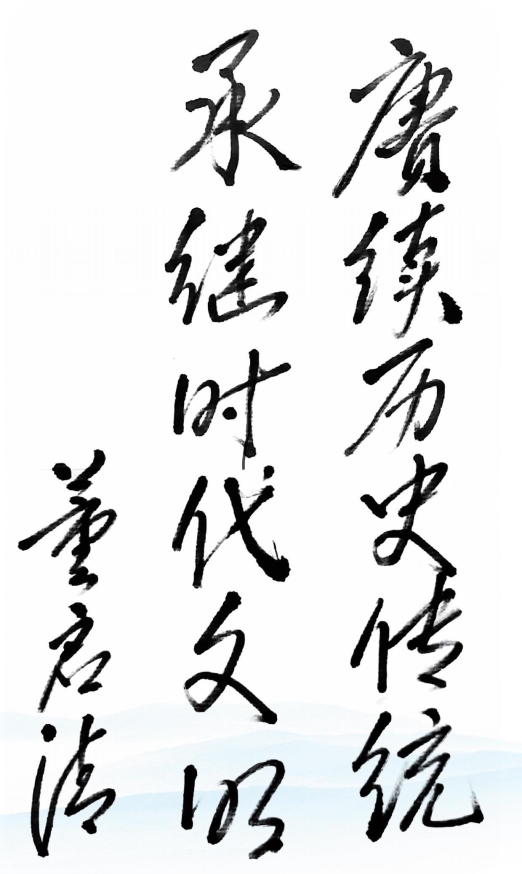 赓续历史传统
承继时代文明
董君清